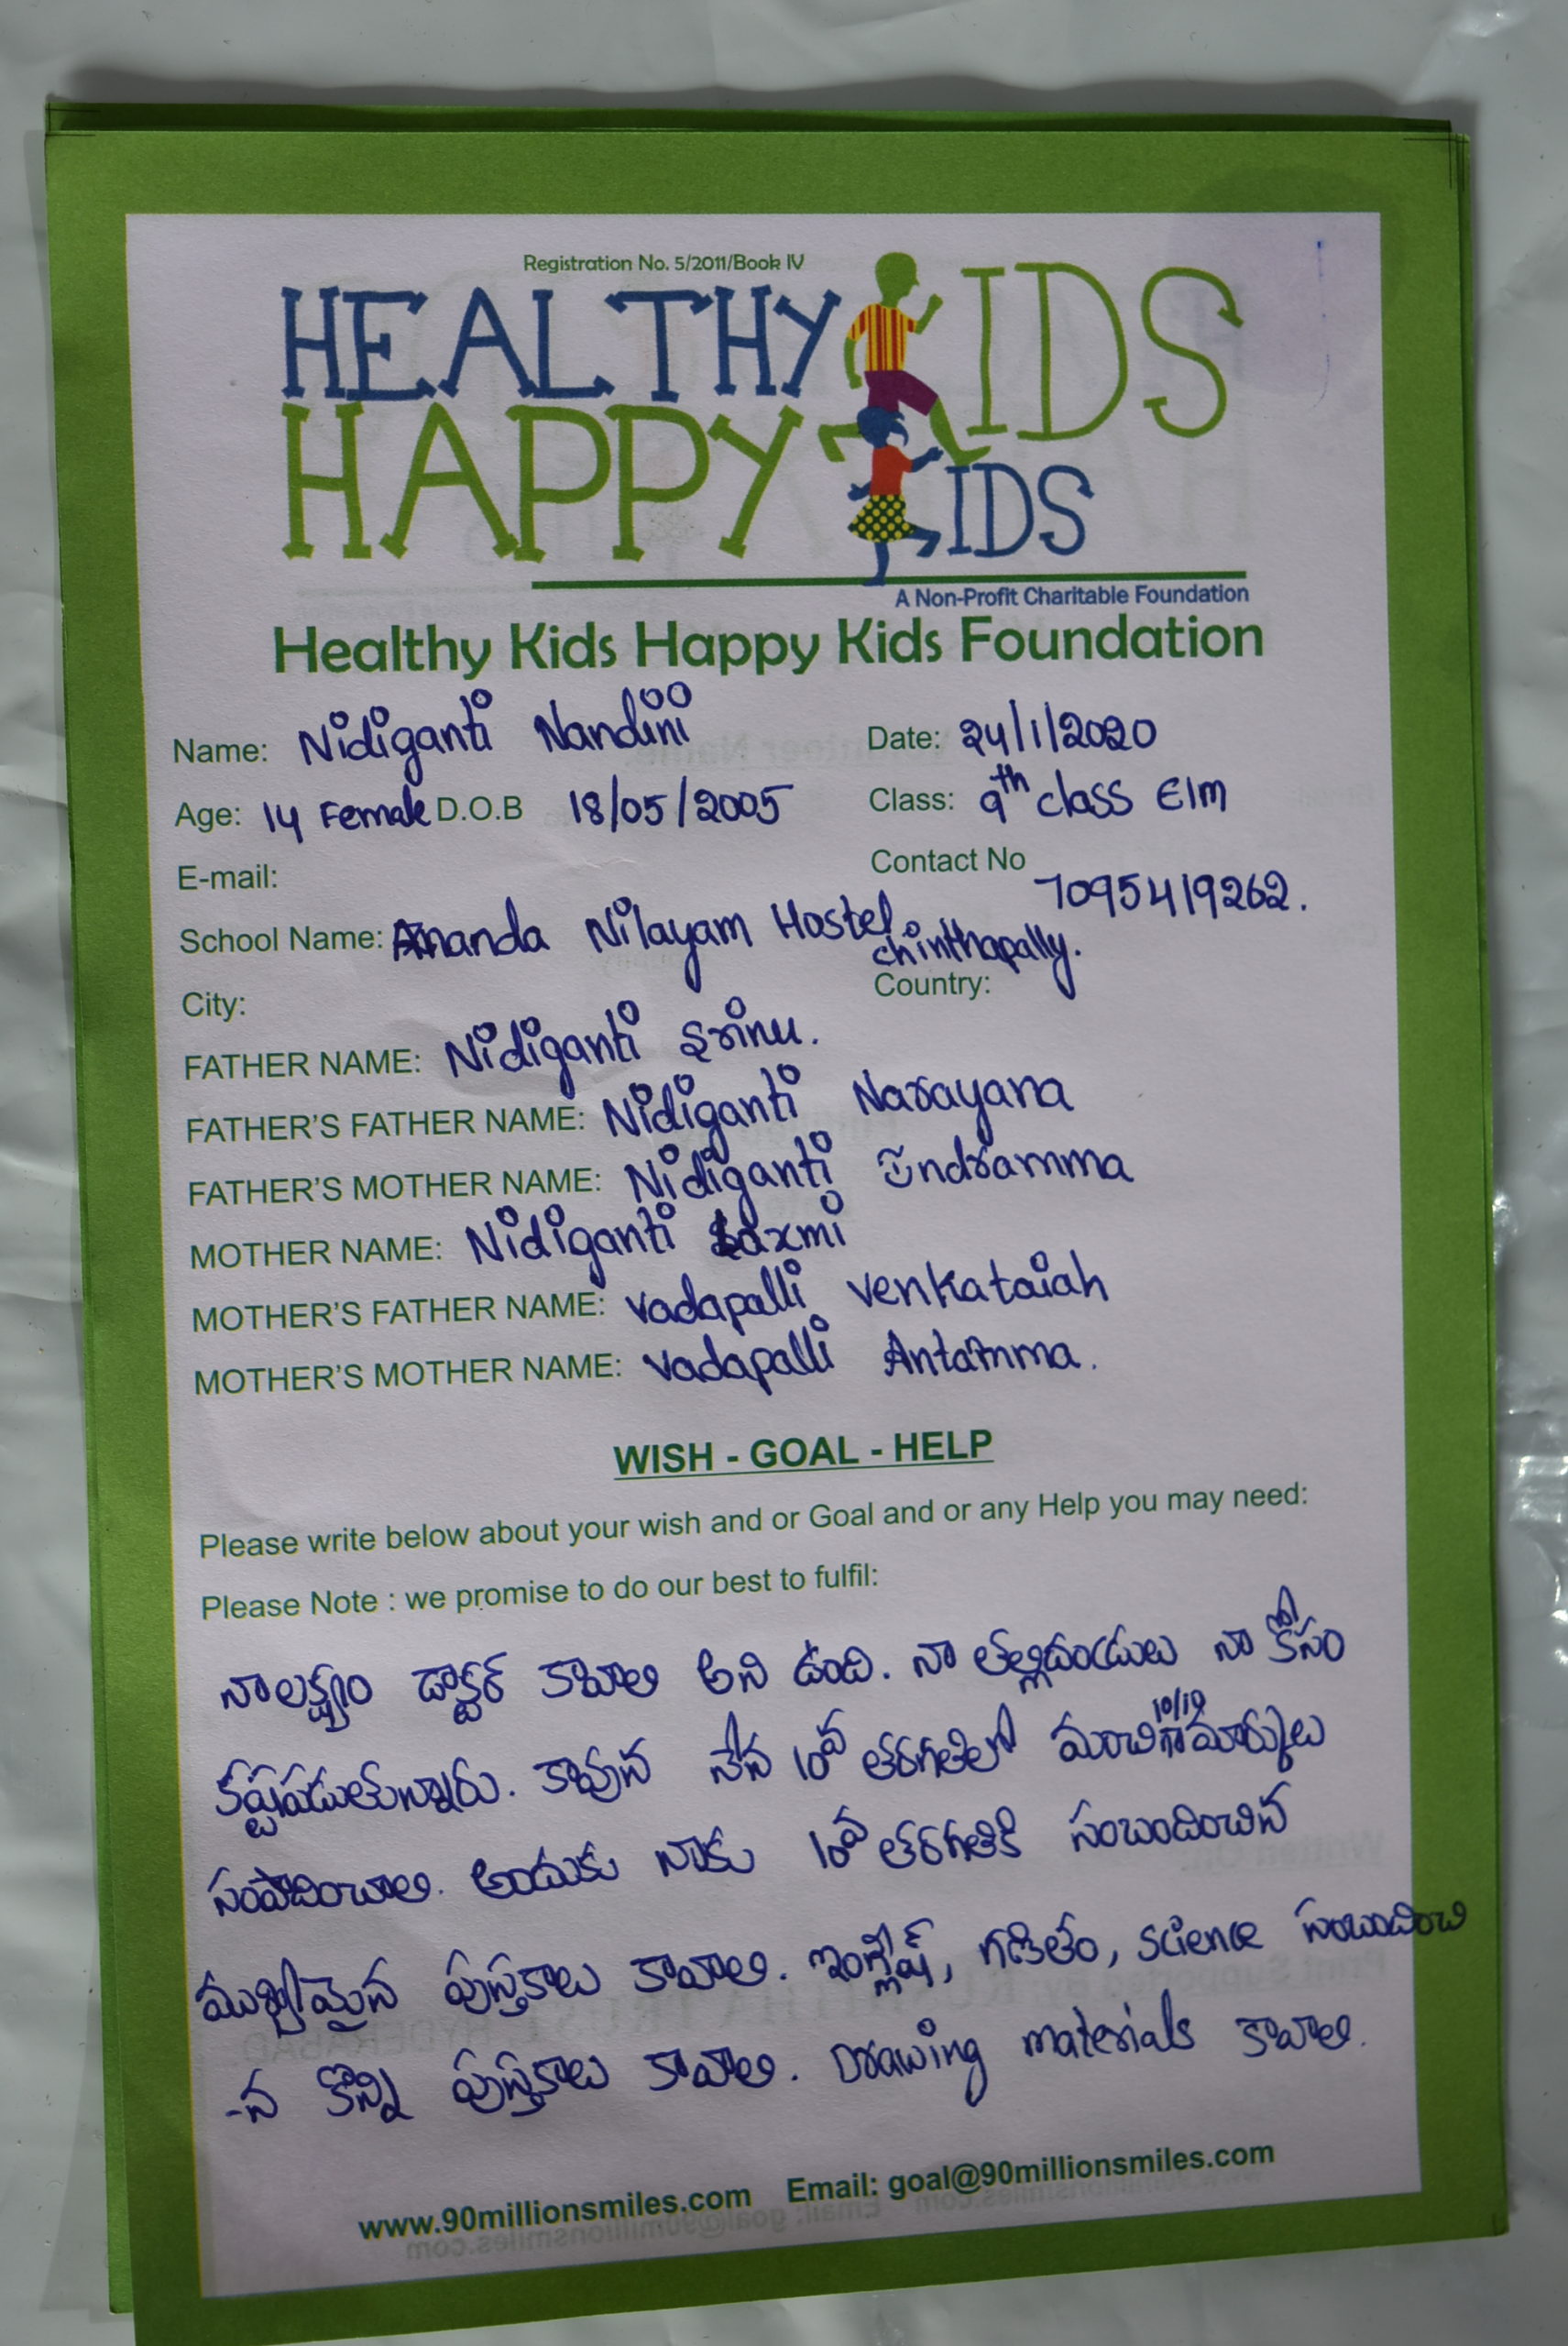 Registration No. 5/2011/Book IV
HEALTHY KIDS
HAPPY KIDS
A Non-Profit Charitable Foundation
Healthy Kids Happy Kids Foundation
Name: Nidiganti Nandini Date: 24/1/2020
Age: 14 Female D.O.B 18/05/2005 Class: 9th class E/m
E-mail: Contact No 7095419262.
School Name: Ananda Nilayam Hostel chinthapally.
City: Country:
FATHER NAME: Nidiganti Srinu.
FATHER'S FATHER NAME: Nidiganti Narayana
FATHER'S MOTHER NAME: Nidiganti Indramma
MOTHER NAME: Nidiganti Laxmi
MOTHER'S FATHER NAME: Vadapalli Venkataiah
MOTHER'S MOTHER NAME: Vadapalli Antamma.
WISH - GOAL - HELP
Please write below about your wish and or Goal and or any Help you may need:
Please Note : we promise to do our best to fulfil:
నా లక్ష్యం డాక్టర్ కావాలి అని ఉంది. నా తల్లిదండ్రులు నా కోసం
కష్టపడుతున్నారు. కావున నేన 10వ తరగతిలో మంచిగా 10/10 మార్కులు
సంపాదించాలి. అందుకు నాకు 10వ తరగతికి సంబందించిన
ముఖ్యమైన పుస్తకాలు కావాలి. ఇంగ్లీష్, గణితం, science సంబందించి
-న కొన్ని పుస్తకాలు కావాలి. Drawing materials కావాలి.
www.90millionsmiles.com Email: goal@90millionsmiles.com